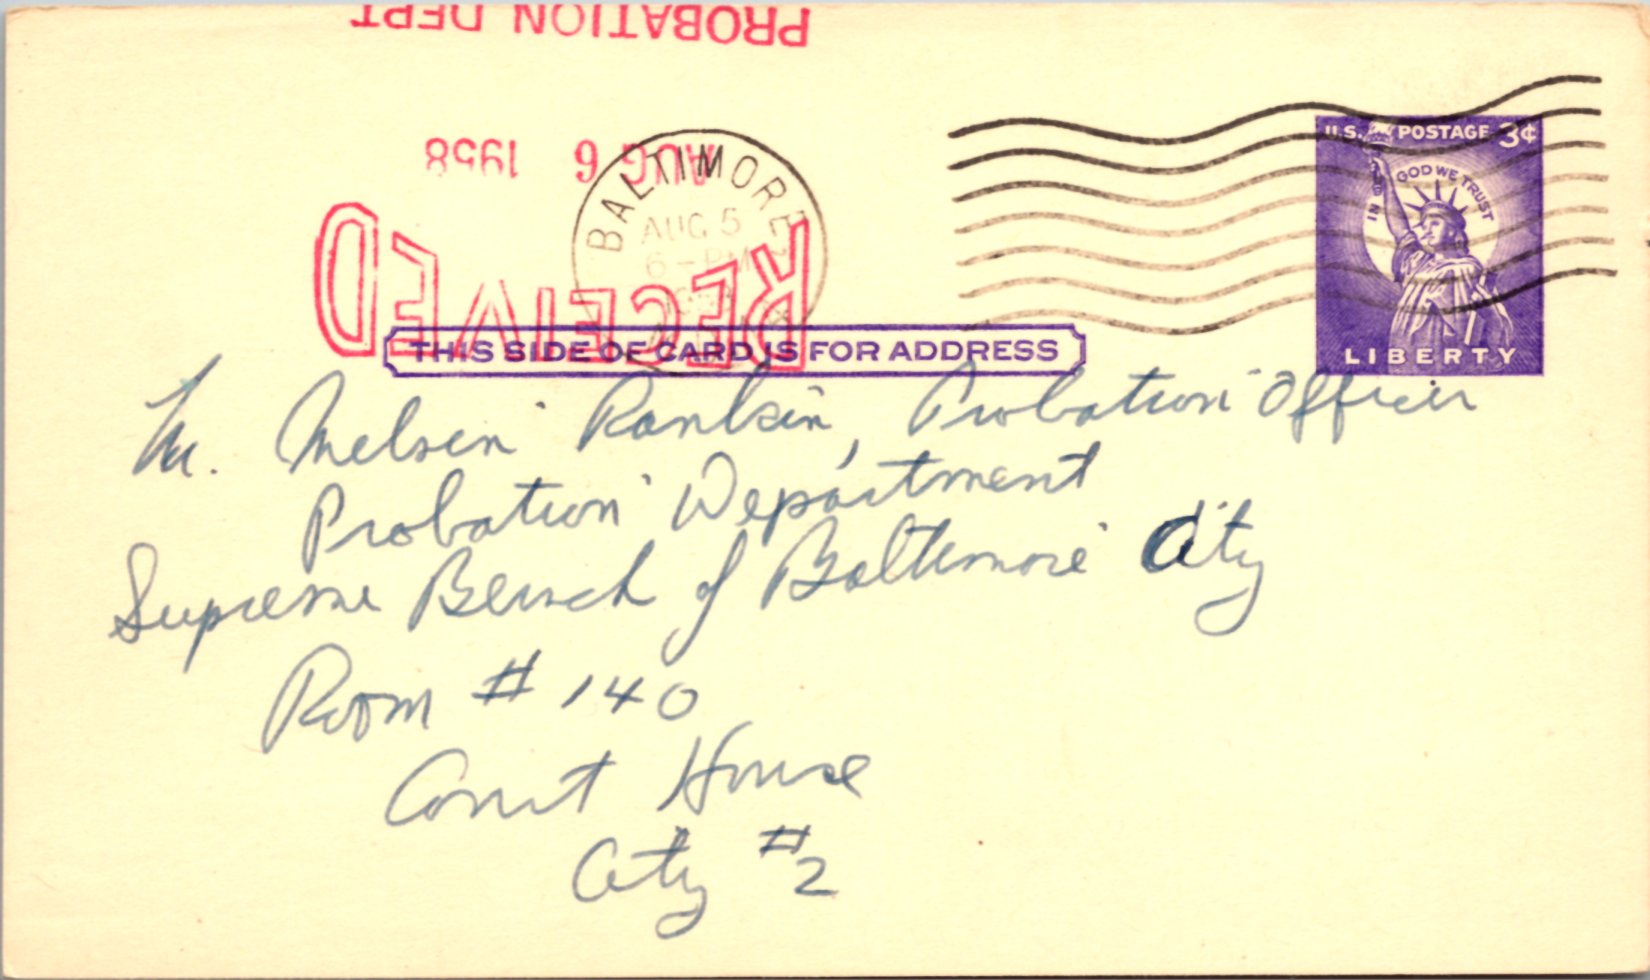 PROBATION DEPT
AUG 6 1958
RECEIVED
BALTIMORE
AUG 5
6 - PM
U.S. POSTAGE 3¢
IN GOD WE TRUST
LIBERTY
THIS SIDE OF CARD IS FOR ADDRESS
Mr. Nelson Rankin, Probation Officer
Probation Department
Supreme Bench of Baltimore City
Room # 140
Court House
City #2